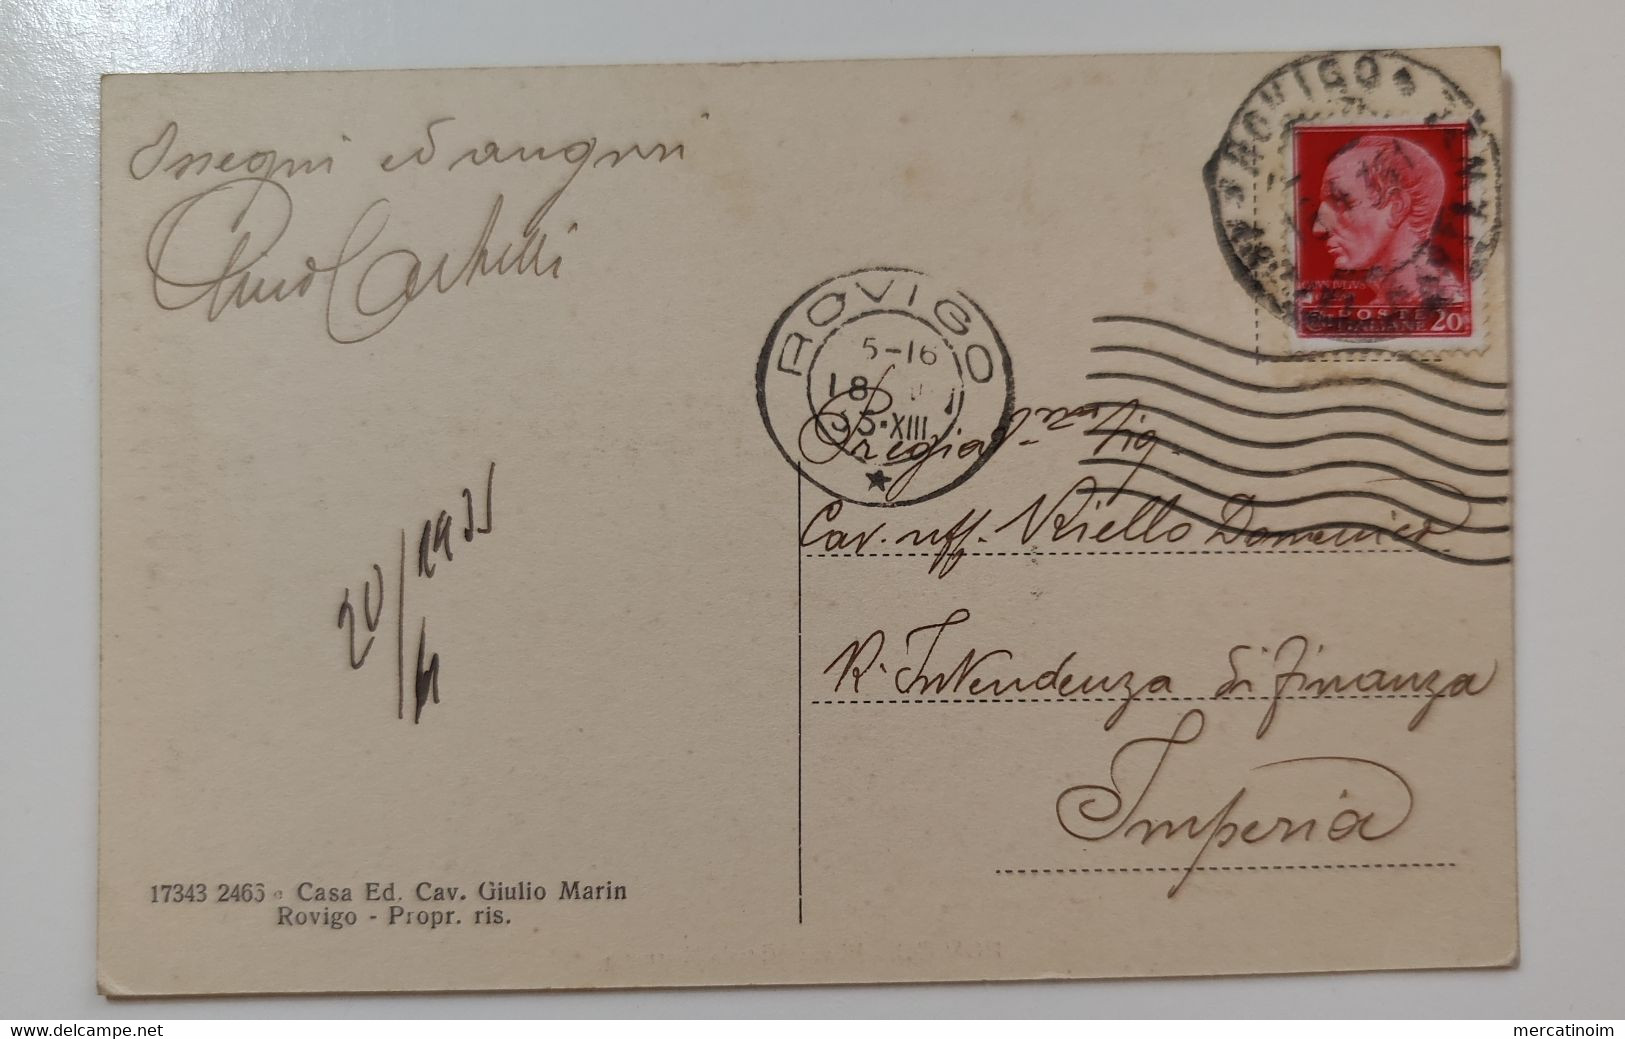 Ossequi ed auguri
Castelli
20/4 1935
17343 2465 Casa Ed. Cav. Giulio Marin
Rovigo - Propr. ris.
ROVIGO
POSTE
ITALIANE 20
ROVIGO
5-16
18
35-XIII
Sig.
Cav. uff. Riello Domenico
R. Intendenza di finanza
Imperia
mercatinoim
delcampe.net